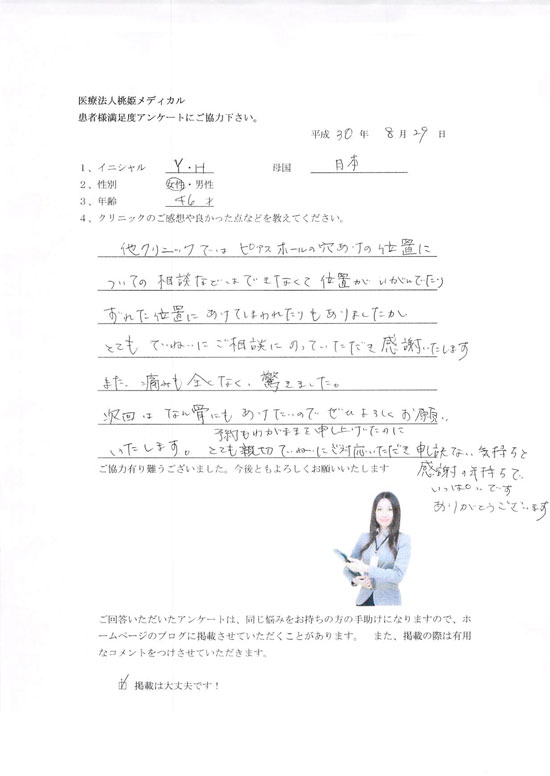 医療法人桃姫メディカル
患者様満足度アンケートにご協力下さい。
平成 30 年 8月 29 日
1、イニシャル Y・H 母国 日本
2、性別 女性・男性
3、年齢 46 才
4、クリニックのご感想や良かった点などを教えてください。
他クリニックでは ピアスホールの穴あけの位置に
ついての相談などはできなくて位置がいがんでたり
ずれた位置にあけてしまわれたりもありましたがし
とても ていねいにご相談にのっていただき感謝いたします
また、痛みも全くなく、驚きました。
次回は なん骨にもあけたいのでぜひよろしくお願い
いたします。 予約もわがままを申し上げたのに
とても親切ていねいにご対応いただき申訳ない気持ちと
感謝の気持ちで、
いっぱいです
ありがとうございます
ご協力有り難うございました。今後ともよろしくお願いいたします
ご回答いただいたアンケートは、同じ悩みをお持ちの方の手助けになりますので、ホ
ームページのブログに掲載させていただくことがあります。 また、掲載の際は有用
なコメントをつけさせていただきます。
☑ 掲載は大丈夫です！